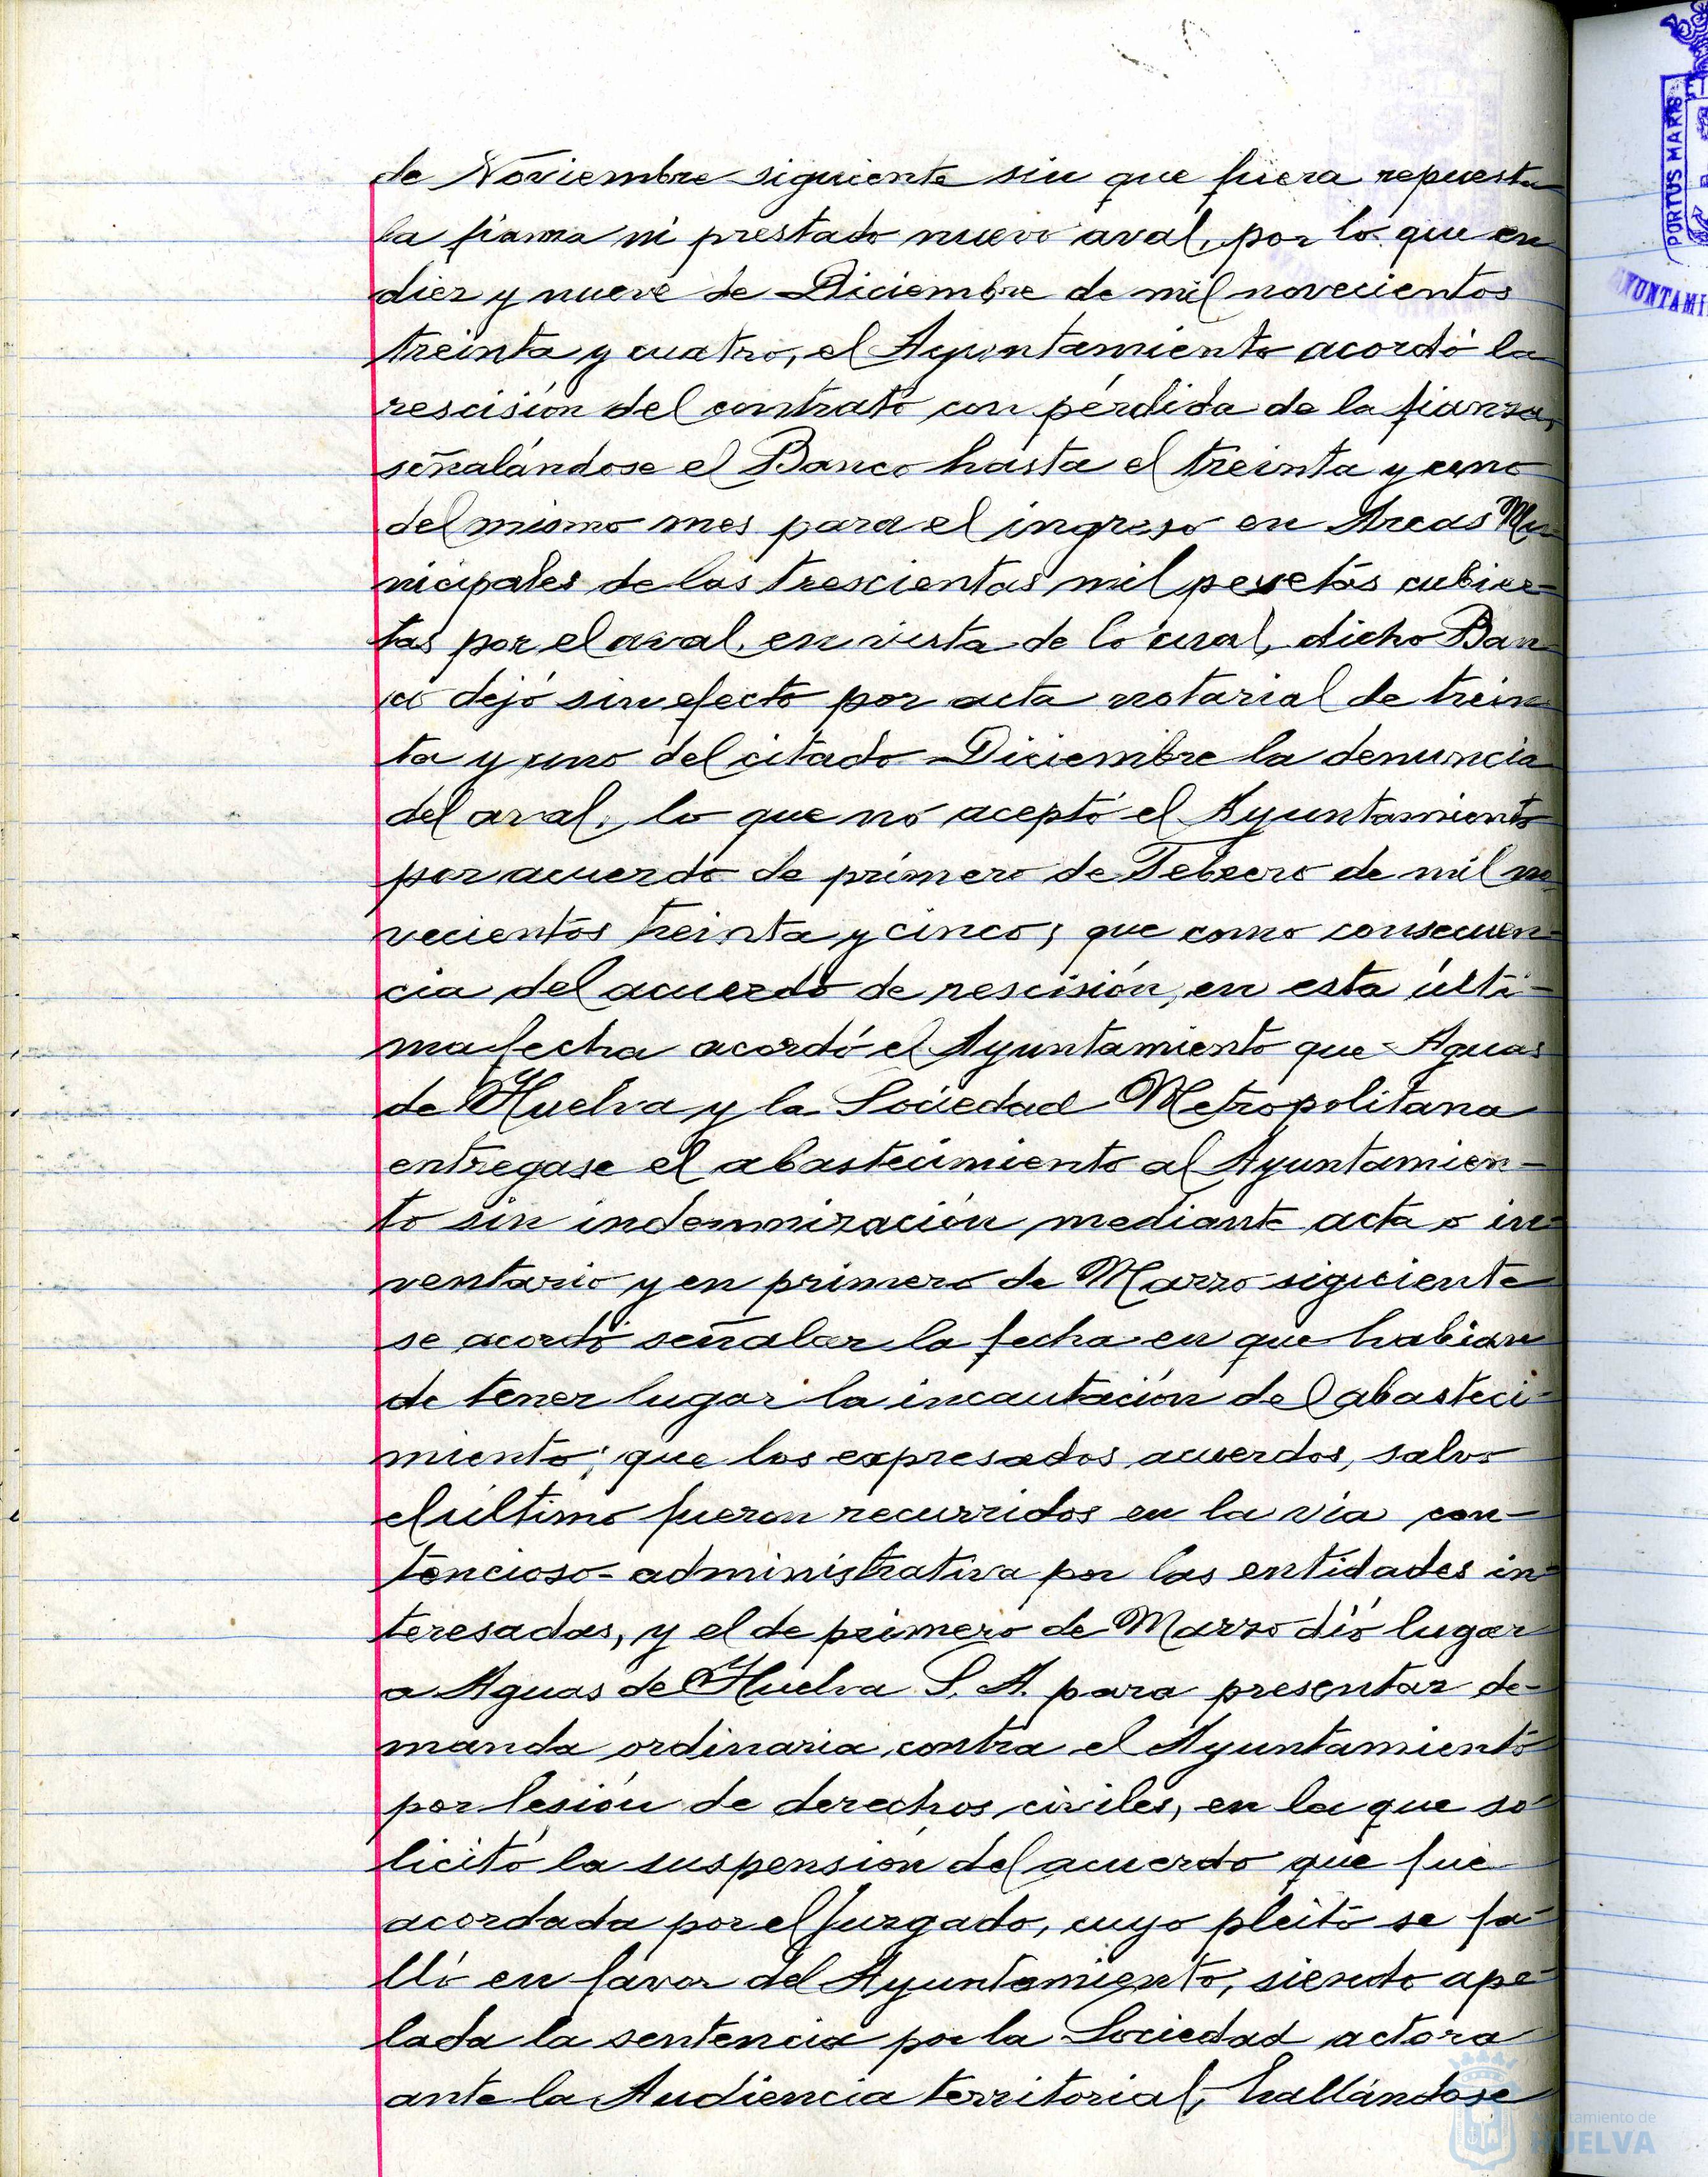 de Noviembre siguiente sin que fuera repuesta
la fianza ni prestado nuevo aval, por lo que en
diez y nueve de Diciembre de mil novecientos
treinta y cuatro, el Ayuntamiento acordó la
rescisión del contrato con pérdida de la fianza,
señalándose el Banco hasta el treinta y uno
del mismo mes para el ingreso en Arcas Mu-
nicipales de las trescientas mil pesetas cubier-
tas por el aval, en vista de lo cual, dicho Ban-
co dejó sin efecto por acta notarial de trein-
ta y uno del citado Diciembre la denuncia
del aval, lo que no aceptó el Ayuntamiento
por acuerdo de primero de Febrero de mil no-
vecientos treinta y cinco; que como consecuen-
cia del acuerdo de rescisión, en esta últi-
ma fecha acordó el Ayuntamiento que Aguas
de Huelva y la Sociedad Metropolitana
entregase el abastecimiento al Ayuntamien-
to sin indemnización mediante acta o in-
ventario y en primero de Marzo siguiente
se acordó señalar la fecha en que habian
de tener lugar la incautación del abasteci-
miento; que los expresados acuerdos, salvo
el último fueron recurridos en la via con-
tencioso-administrativa por las entidades in-
teresadas, y el de primero de Marzo dió lugar
a Aguas de Huelva S. A. para presentar de-
manda ordinaria contra el Ayuntamiento
por lesión de derechos civiles, en la que so-
licitó la suspensión del acuerdo que fué
acordada por el Juzgado, cuyo pleito se fa-
lló en favor del Ayuntamiento, siendo ape-
lada la sentencia por la Sociedad actora
ante la Audiencia territorial, hallándose
PORTUS MARIS
Ayuntamiento de
HUELVA